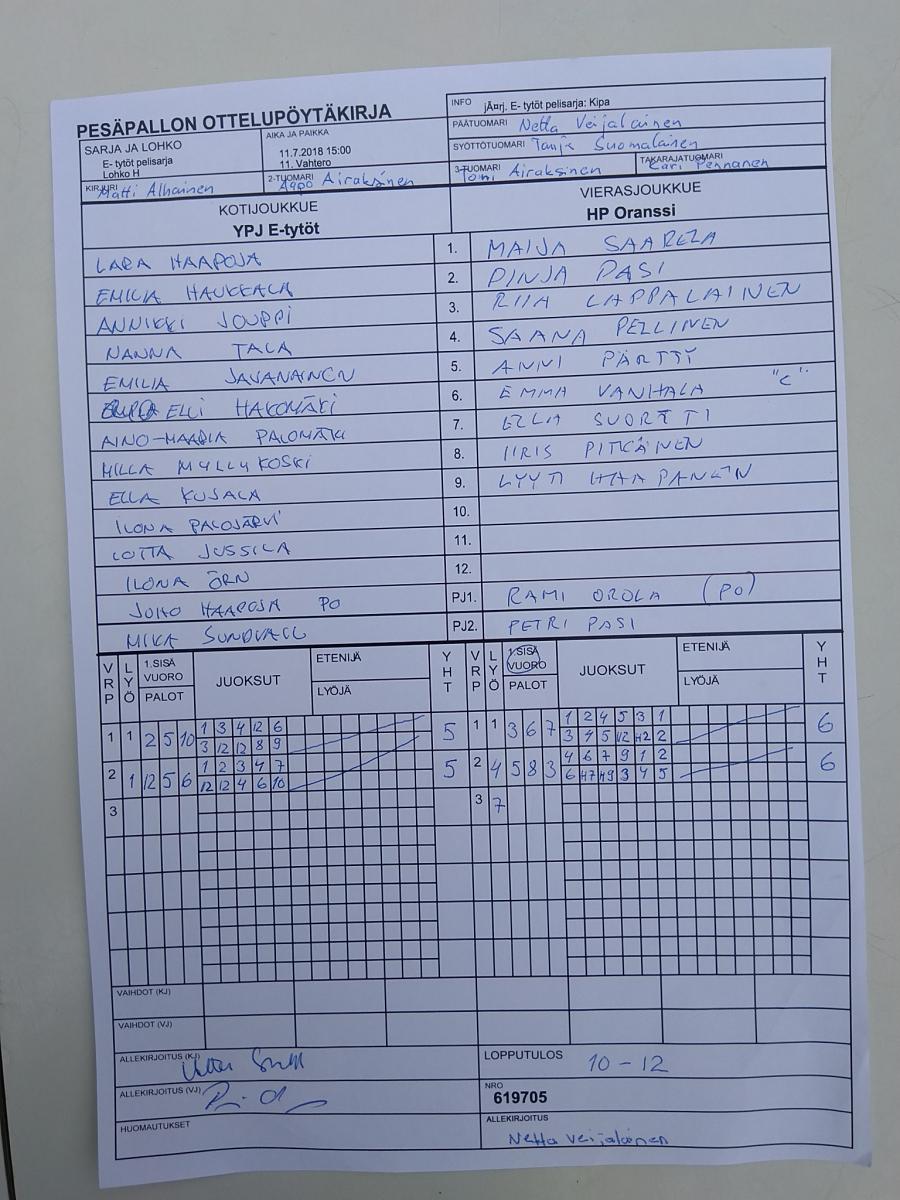 PESÄPALLON OTTELUPÖYTÄKIRJA
INFO jÃ¤rj. E- tytöt pelisarja: Kipa
PÄÄTUOMARI Netta Veijalainen
SARJA JA LOHKO
E- tytöt pelisarja
Lohko H
AIKA JA PAIKKA
11.7.2018 15:00
11. Vahtero
SYÖTTÖTUOMARI Tanja Suomalainen
KIRJURI Matti Alhainen
2-TUOMARI Aapo Airaksinen
3-TUOMARI Toni Airaksinen
TAKARAJATUOMARI Cari Pennanen
KOTIJOUKKUE
YPJ E-tytöt
VIERASJOUKKUE
HP Oranssi
LARA HAAPOJA 1. MAIJA SAARELA
EMILIA HAUKKALA 2. PINJA PASI
ANNIKKI JOUPPI 3. RIIA LAPPALAINEN
NANNA TALA 4. SAANA PELLINEN
EMILIA JAVANAINEN 5. ANNI PÄRTTY
ELLI HAKOMÄKI 6. EMMA VANHALA "C"
AINO-MARIA PALOMÄKI 7. ELLA SUORTTI
MILLA MYLLYKOSKI 8. IIRIS PITKÄNEN
ELLA KUJALA 9. LYYTI HAAPANEN
ILONA PALOJÄRVI 10.
LOTTA JUSSILA 11.
ILONA ÖRN 12.
JUHO HAAPOJA PO PJ1. RAMI OROLA (PO)
MIKA SUNDVALL PJ2. PETRI PASI
VRP LYÖ 1.SISÄ VUORO PALOT JUOKSUT ETENIJÄ LYÖJÄ YHT VRP LYÖ 1.SISÄ VUORO PALOT JUOKSUT ETENIJÄ LYÖJÄ YHT
1 1 2 5 10 1 3 4 12 6 5 1 1 3 6 7 1 2 4 5 3 1 6
3 12 12 8 9 3 4 5 12 H2 2
2 1 12 5 6 1 2 3 4 7 5 2 4 5 8 3 4 6 7 9 1 2 6
12 12 4 6 10 6 H7 H9 3 4 5
3 3 7
VAIHDOT (KJ)
VAIHDOT (VJ)
ALLEKIRJOITUS (KJ)
LOPPUTULOS 10 - 12
ALLEKIRJOITUS (VJ)
NRO
619705
HUOMAUTUKSET
ALLEKIRJOITUS
Netta Veijalainen